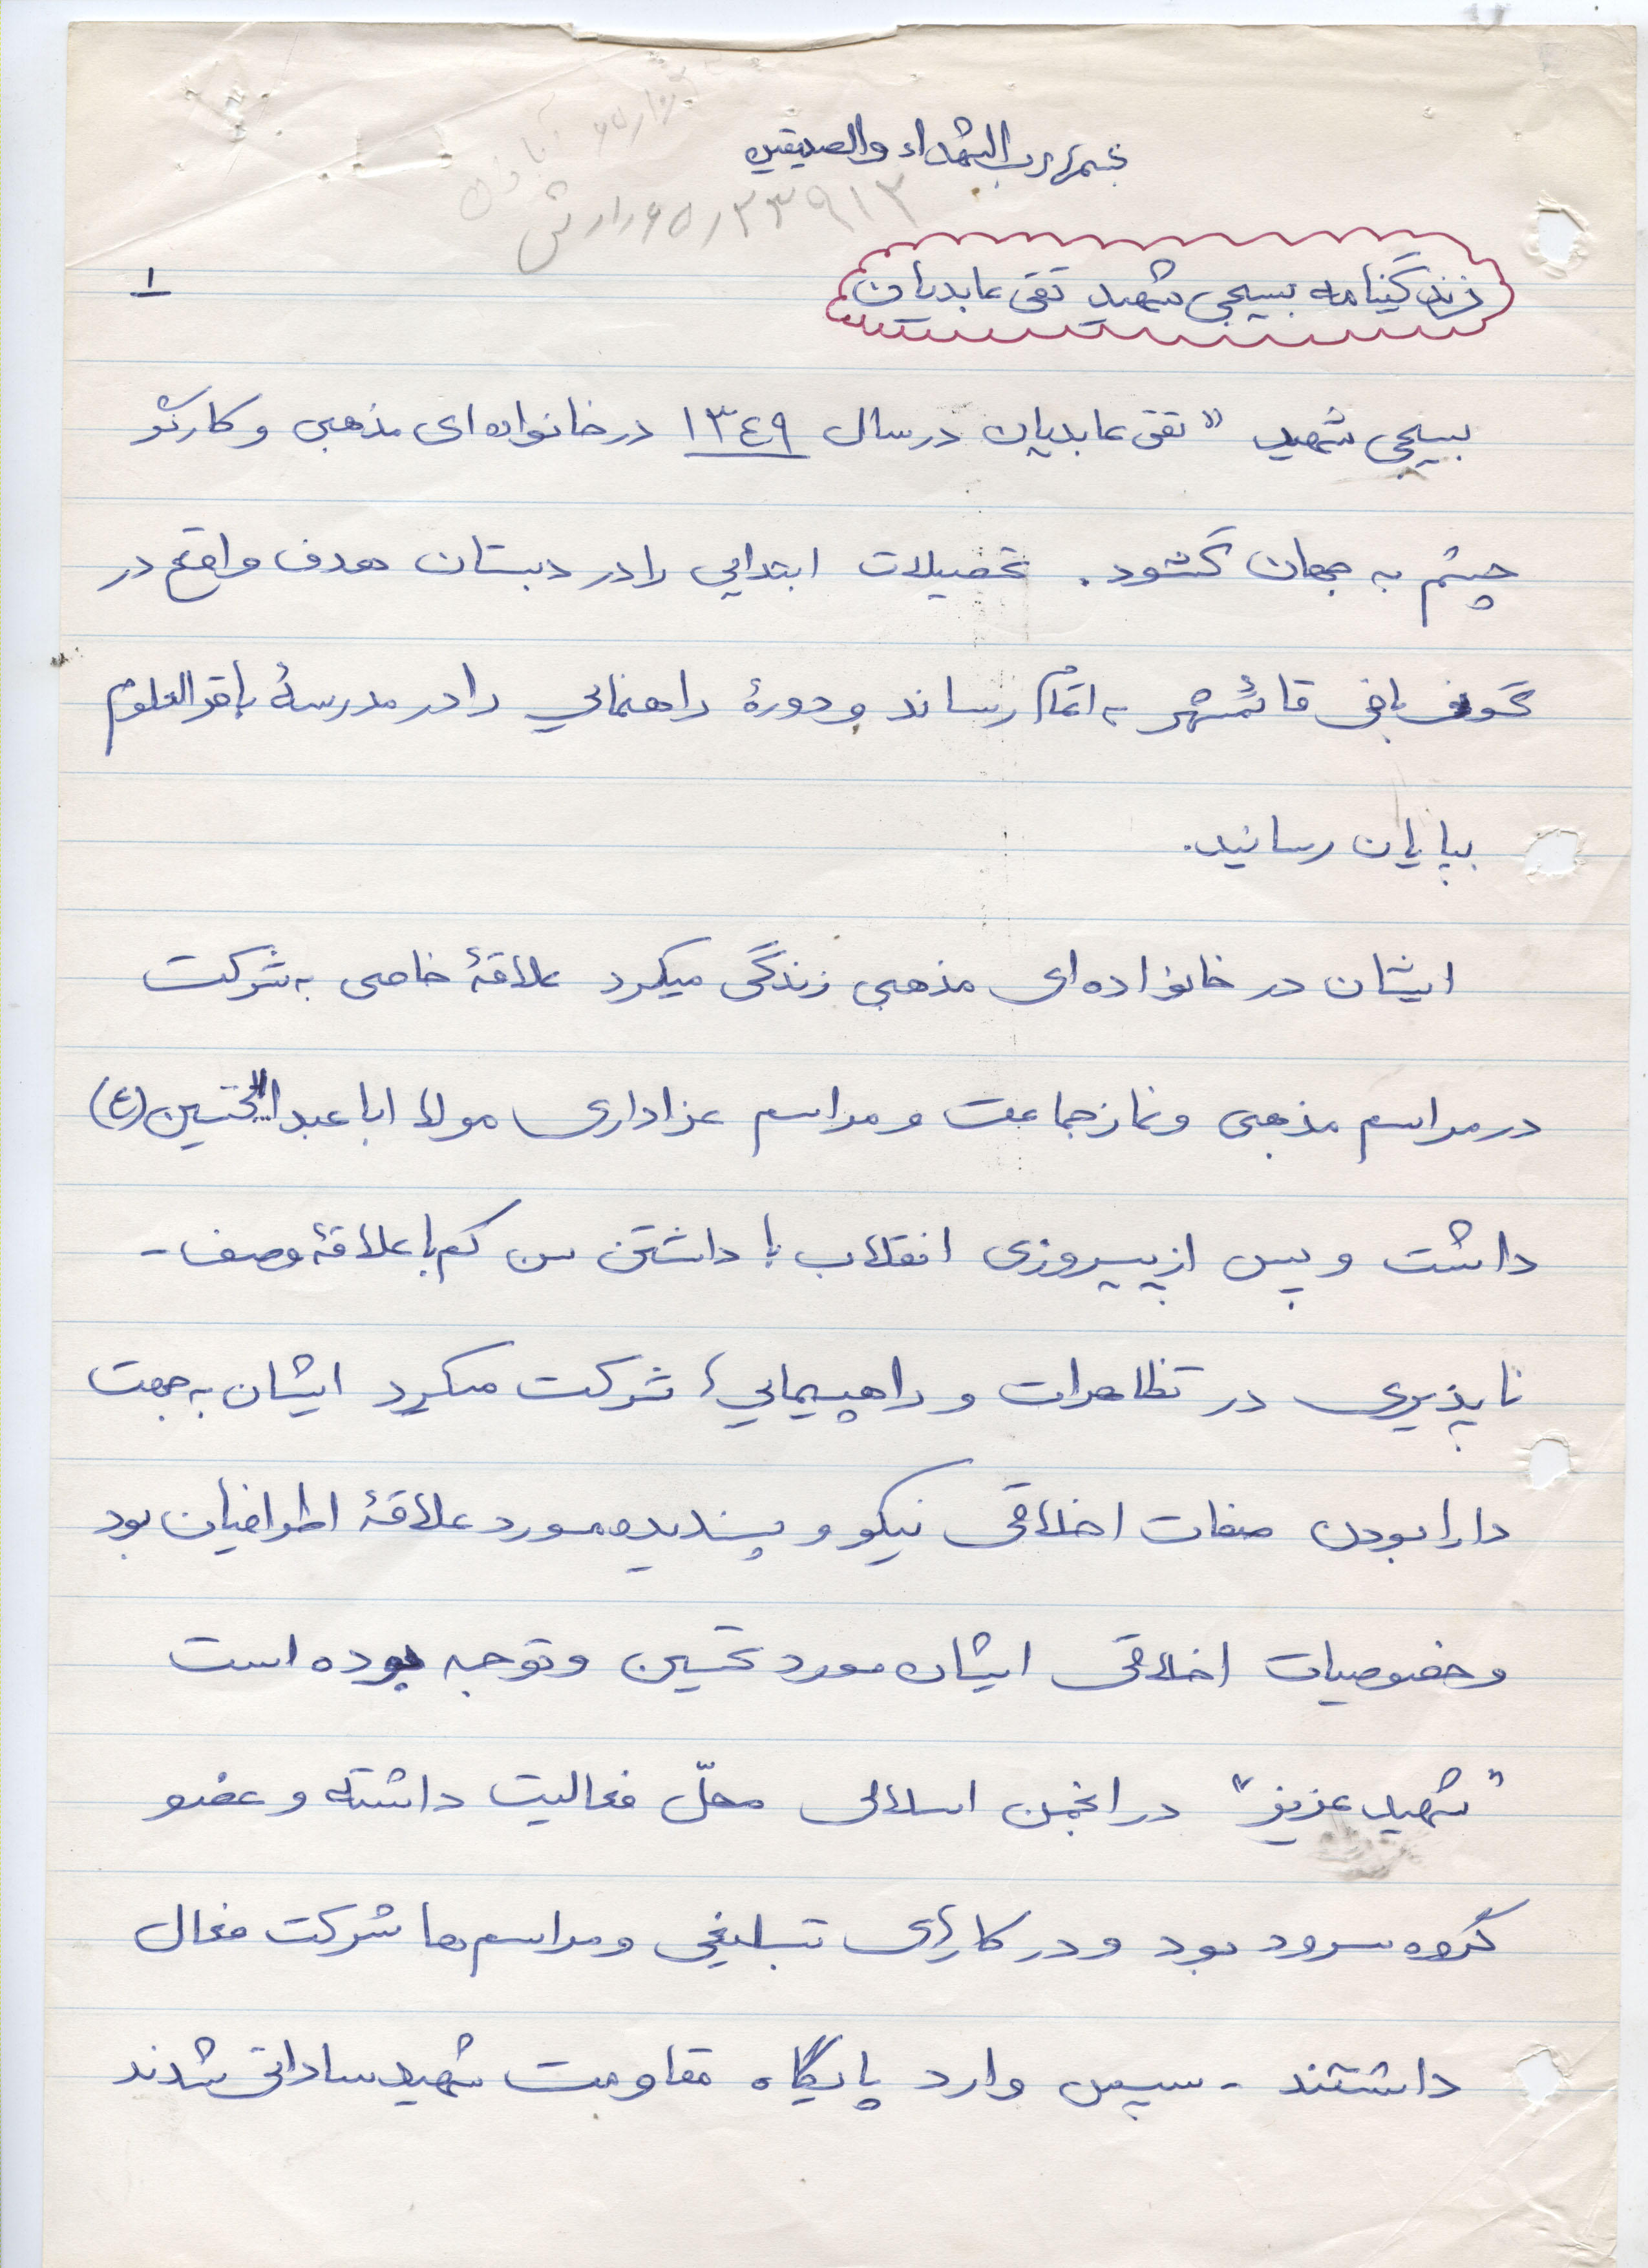 بسم رب الشهداء والصدیقین
۶۵/۲۳۹۱۳
زندگینامه بسیجی شهید تقی عابدیان
۱
بسیجی شهید " تقی عابدیان در سال ۱۳۴۹ در خانواده ای مذهبی و کارگر
چشم به جهان گشود . تحصیلات ابتدایی را در دبستان هدف واقع در
گونی بافی قائمشهر به اتمام رساند و دورهٔ راهنمائی را در مدرسهٔ باقرالعلوم
بپایان رسانید.
ایشان در خانواده ای مذهبی زندگی میکرد علاقهٔ خاصی به شرکت
در مراسم مذهبی و نماز جماعت و مراسم عزاداری مولا ابا عبدالحسین (ع)
داشت و پس از پیروزی انقلاب با داشتن سن کم با علاقهٔ وصف -
ناپذیری در تظاهرات و راهپیمایی شرکت میکرد ایشان به جهت
دارا بودن صفات اخلاقی نیکو و پسندیده مورد علاقهٔ اطرافیان بود
و خصوصیات اخلاقی ایشان مورد تحسین و توجه بوده است
"شهید عزیز" در انجمن اسلامی محلّ فعالیت داشته و عضو
گروه سرود بود و در کارهای تبلیغی و مراسم ها شرکت فعال
داشتند - سپس وارد پایگاه مقاومت شهید ساداتی شدند